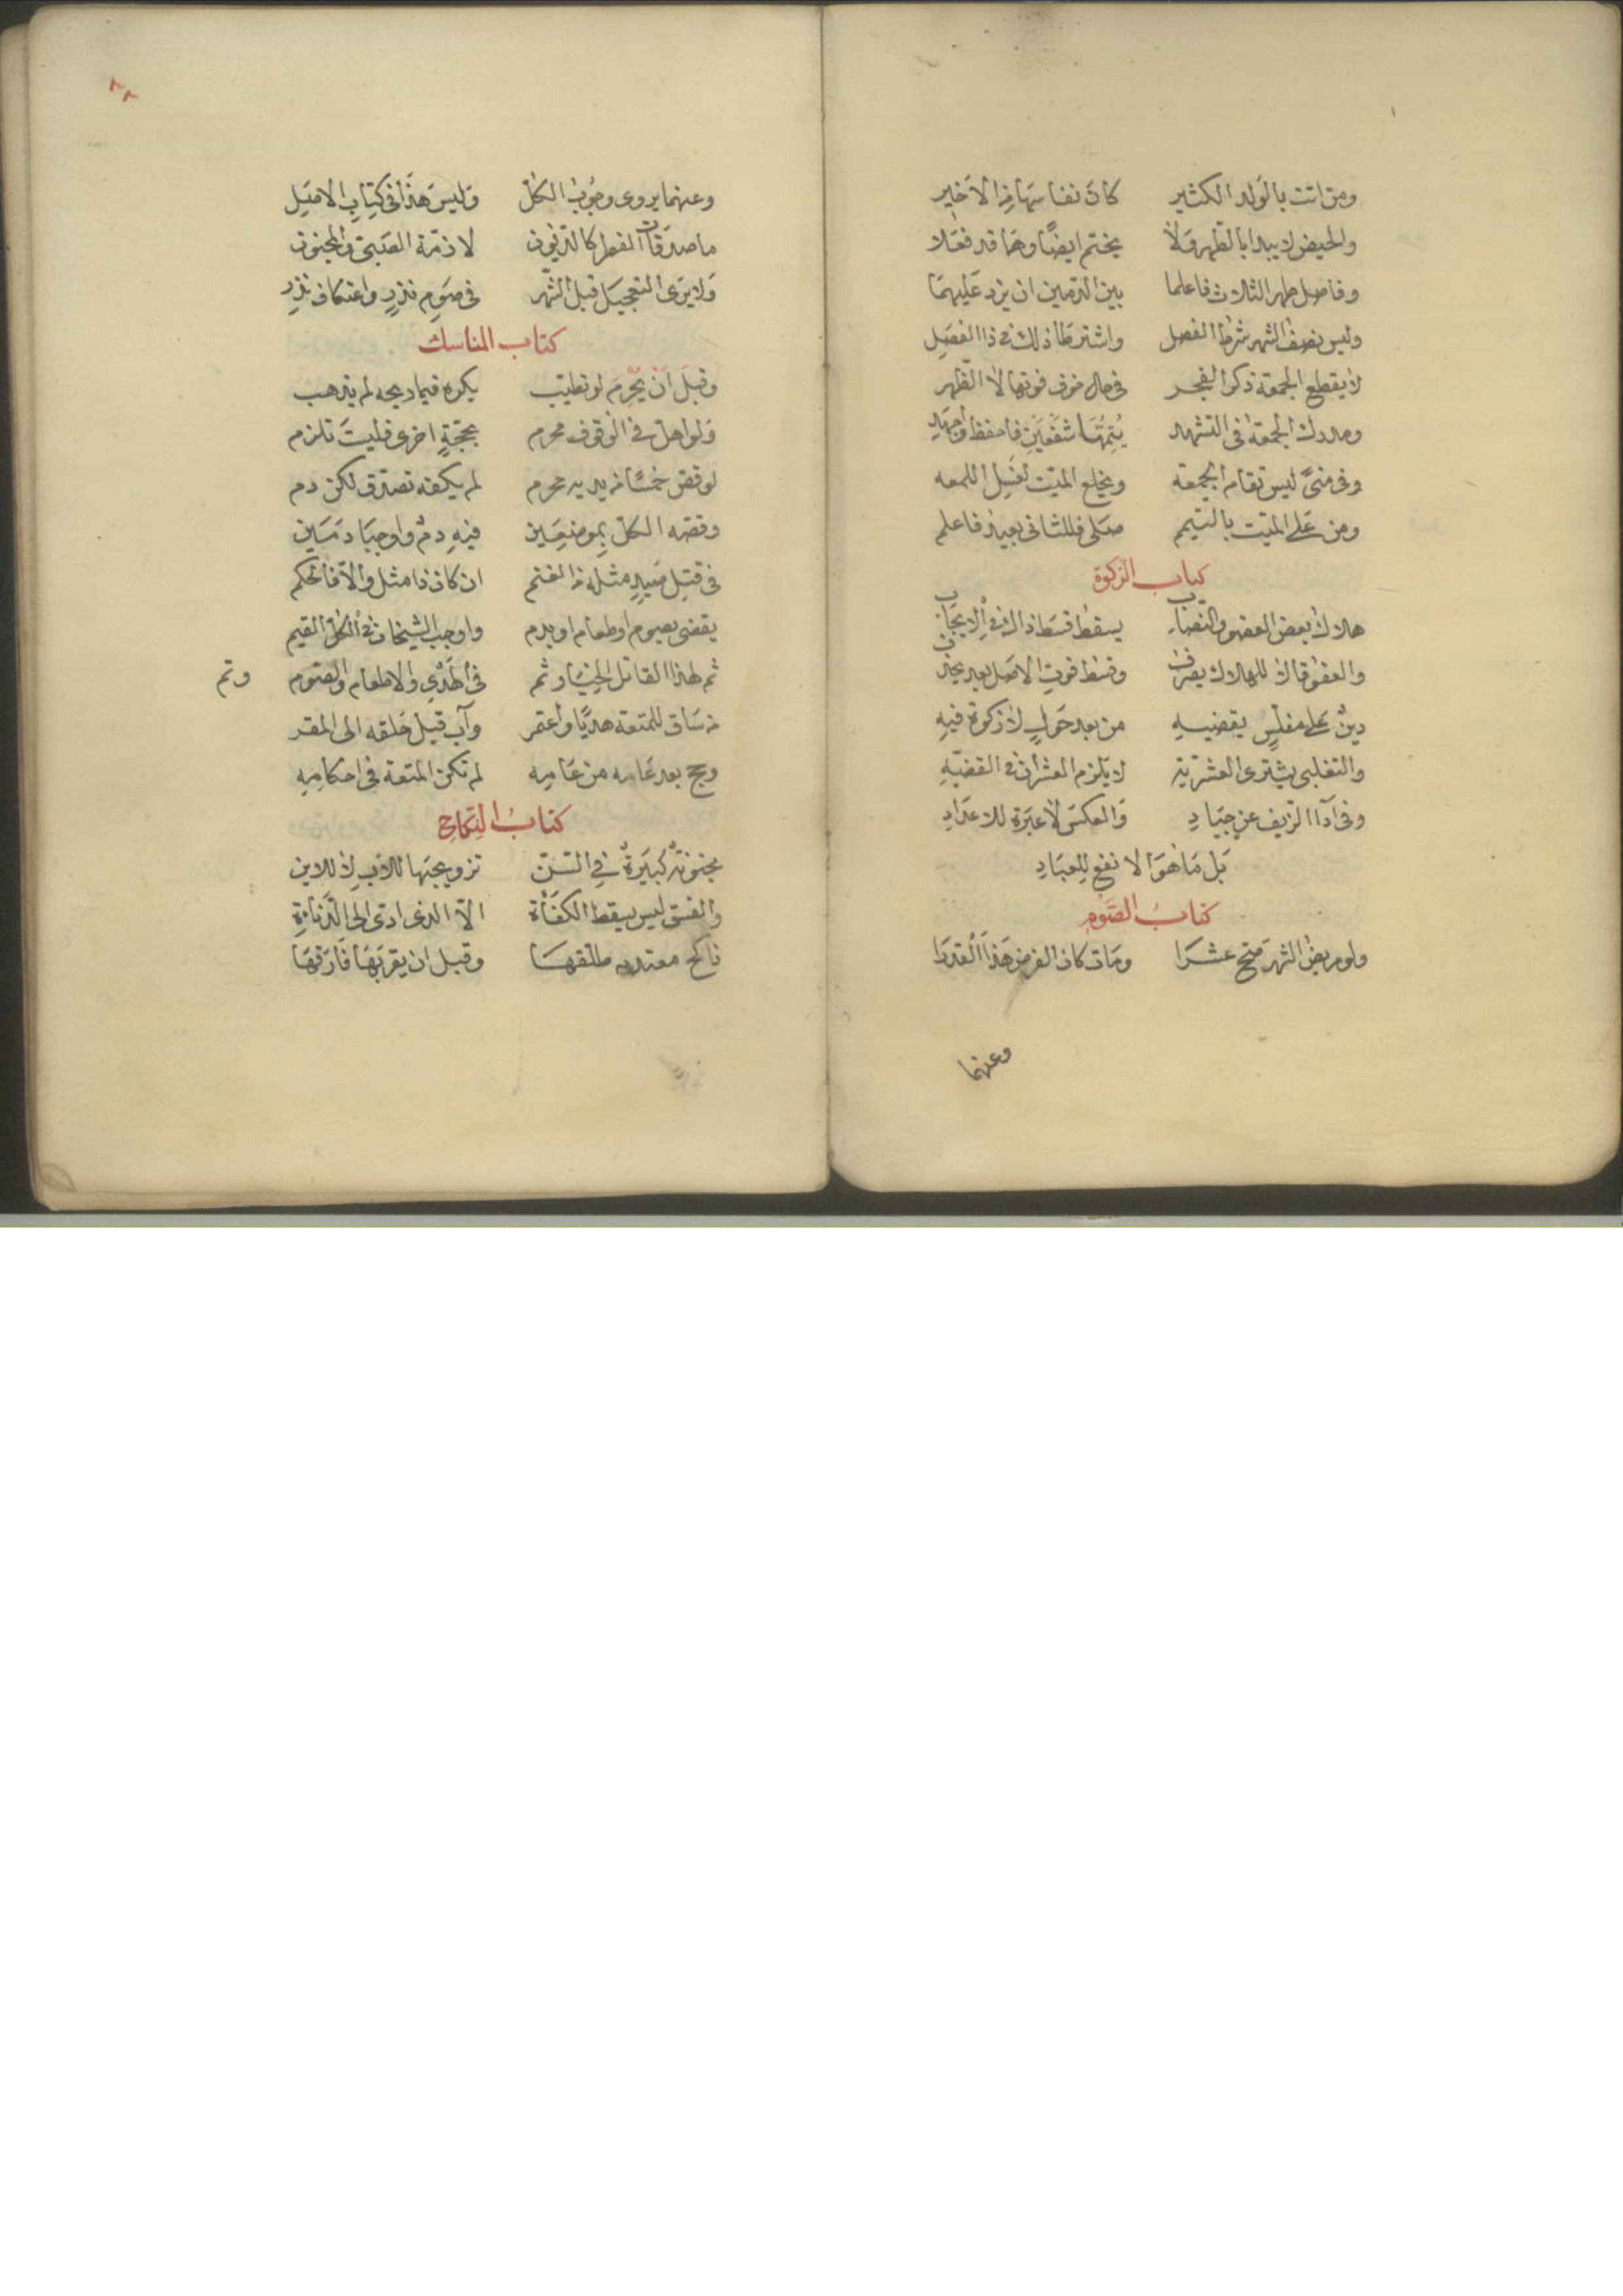 ومن اتت بالولد الكثير كان نفاسها من الاخير
والحيض لا يبدا بالطهر ولا يختم ايضا وهما قد فعلا
وفاصل طهر الثلاث فاعلما بين الدمين ان يزد عليهما
وليس نصف الشهر شرط الفصل واشترطا ذلك في ذا الفصل
لا يقطع الجمعة ذكر الفجر في حال خوف فوتها لا الظهر
ومدرك الجمعة في التشهد يتمها شفعين فاحفظ واجهد
وفي منى ليس تقام الجمعة ويخلع الميت لغسل اللمعه
ومن على الميت بالتيمم صلى فللثاني يعيد فاعلم
كتاب الزكوة
هلاك بعض العفو والنصاب يسقط قسط ذاك في الايجاب
والعفو قال للهلاك يصرف وقسط فوت الاصل بعد يحذف
دين على مفلس يقضيه من بعد حول لا زكوة فيه
والتغلبي يشترى العشرية لا يلزم العشران في القضيه
وفي ادآ الزيف عن جياد والعكس لا عبرة للاعداد
بل ما هو الانفع للعباد
كتاب الصوم
ولو مريض الشهر صح عشرا ومات كان الفرض هذا القدرا
وعنهما
٢٢
وعنهما يروى وجوب الكل وليس هذا في كتاب الاصل
ما صدقات الفطر كالديون لا ذمة الصبي والمجنون
ولا يرى التعجيل قبل الشهر في صوم نذر واعتكاف نذر
كتاب المناسك
وقبل ان يحرم لو تطيب يكره فيما ريحه لم يذهب
ولو اهل في الوقوف محرم بحجة اخرى فليست تلزم
لو قص خمسا من يديه محرم لم يكفه تصدق لكن دم
وقصه الكل بموضعين فيه دم واوجبا دمين
في قتل صيد مثله من الغنم ان كان ذا مثل والا فالحكم
يقضى بصوم او طعام او بدم واوجب الشيخان في الكل القيم
ثم لهذا القاتل الخيار ثم في الهدي والاطعام والصوم وتم
من ساق للمتعة هديا واعتمر وآب قبل حلقه الى المقر
وحج بعد عامه من عامه لم تكن المتعة في احكامه
كتاب النكاح
مجنونة كبيرة في السن تزويجها للاب لا للابن
والفسق ليس يسقط الكفأة الا الذى ادى الى الدناءة
ناكح معتدته طلقها وقبل ان يقربها فارقها